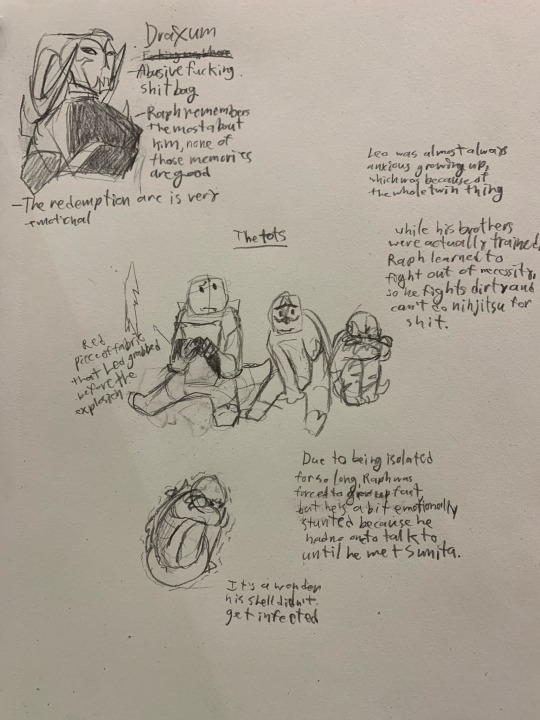 Draxum
-Abusive fucking
shitbag
-Raph remembers
the most about
him, none of
those memories
are good
-The redemption arc is very
emotional
Leo was almost always
anxious growing up,
which was because of
the whole twin thing
while his brothers
were actually trained,
Raph learned to
fight out of necessity,
so he fights dirty and
can't do ninjitsu for
shit.
The tots
Red
piece of fabric
that Leo grabbed
before the
explosion
Due to being isolated
for so long, Raph was
forced to grow up fast
but he is a bit emotionally
stunted because he
had no one to talk to
until he met Sunita.
It's a wonder
his shell didn't
get infected